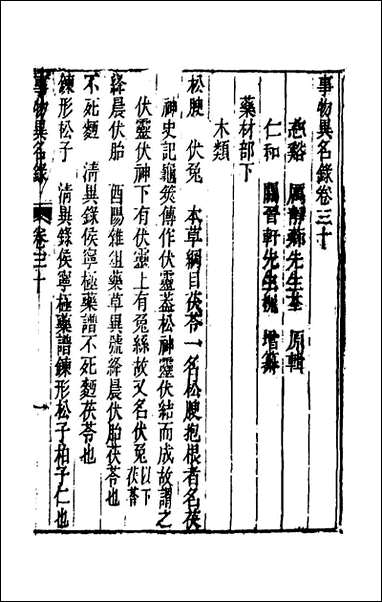 事物異名錄卷三十
慈谿　厲靜薌先生荃　原輯
仁和　關晉軒先生槐　增纂
藥材部下
木類
松腴　伏兔　本草綱目茯苓一名松腴抱根者名茯
神史記龜筴傳作伏靈蓋松神靈伏結而成故謂之
伏靈伏神下有伏靈上有兔絲故又名伏兔以下茯苓
絳晨伏胎　酉陽雜俎藥草異號絳晨伏胎茯苓也
不死麪　清異錄侯寧極藥譜不死麪茯苓也
鍊形松子　清異錄侯寧極藥譜鍊形松子柏子仁也
事物異名錄　卷三十　一